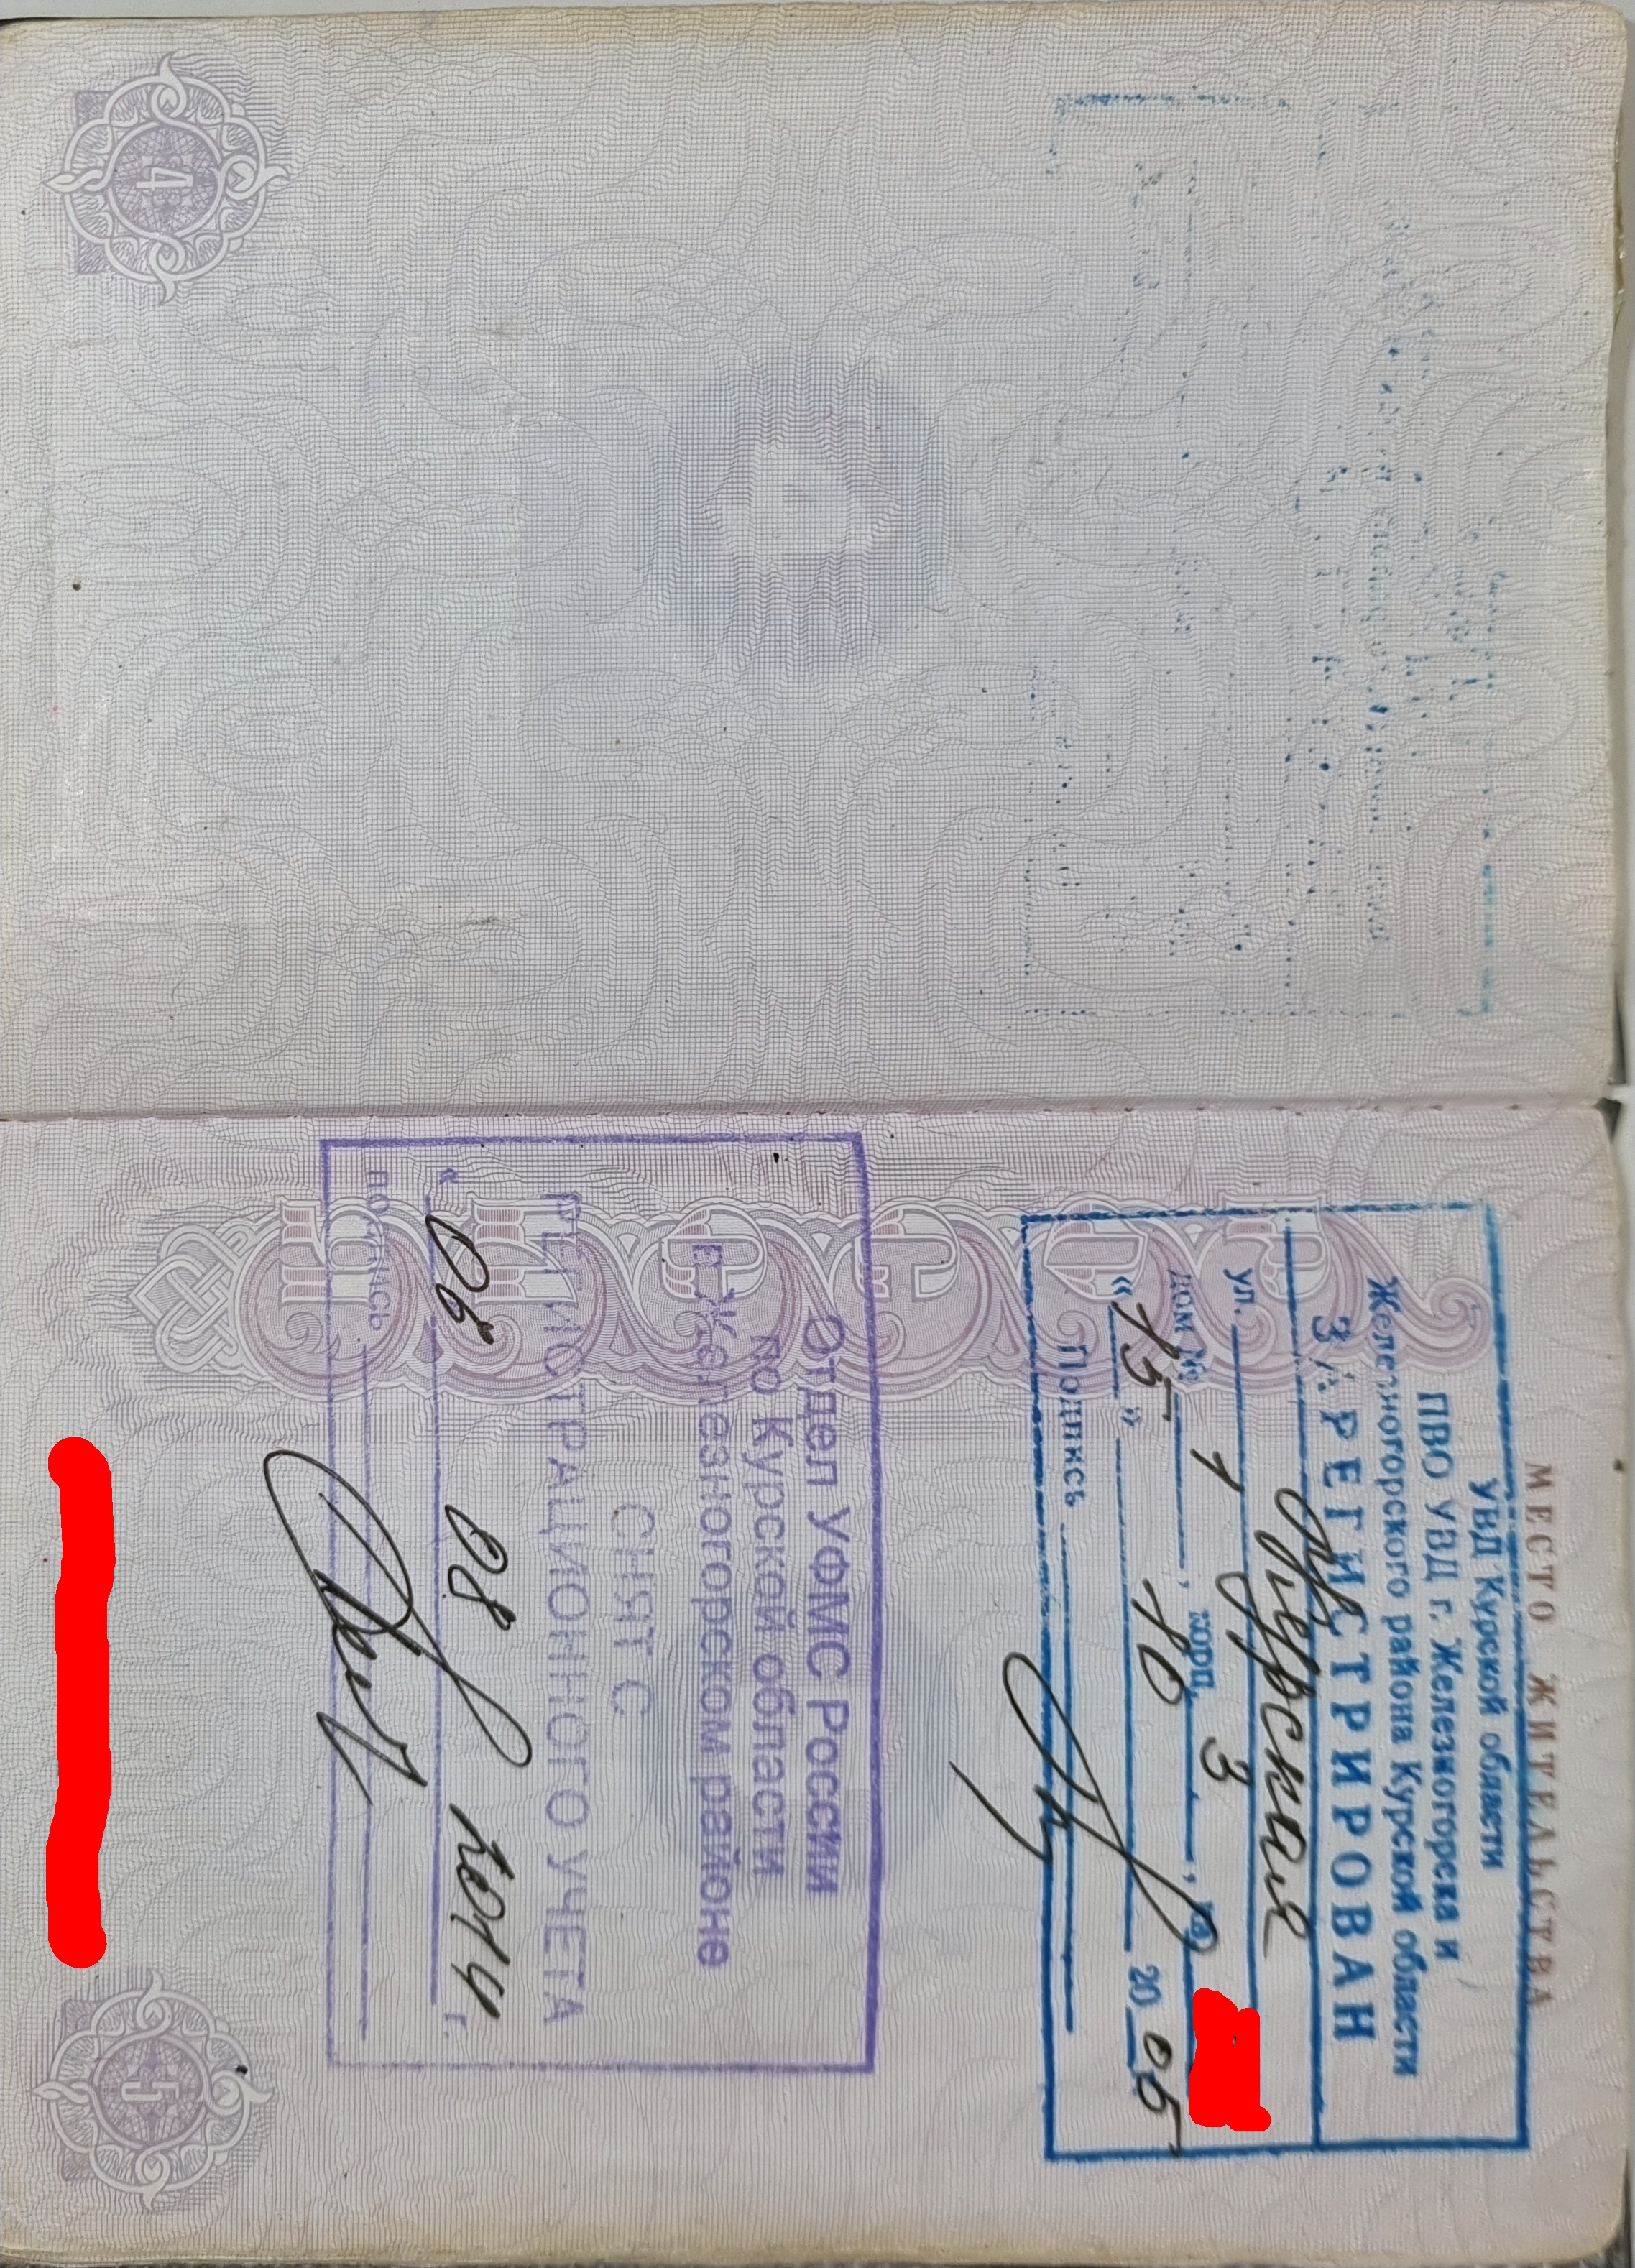 4
МЕСТО ЖИТЕЛЬСТВА
УВД Курской области
ПВО УВД г. Железногорска и
Железногорского района Курской области
ЗАРЕГИСТРИРОВАН
ул. Курская
дом № 1, корп. 3, кв
«15» 10 2005
Подпись
Отдел УФМС России
по Курской области
в Железногорском районе
СНЯТ С
РЕГИСТРАЦИОННОГО УЧЕТА
«06 08 2014 г.
подпись
5